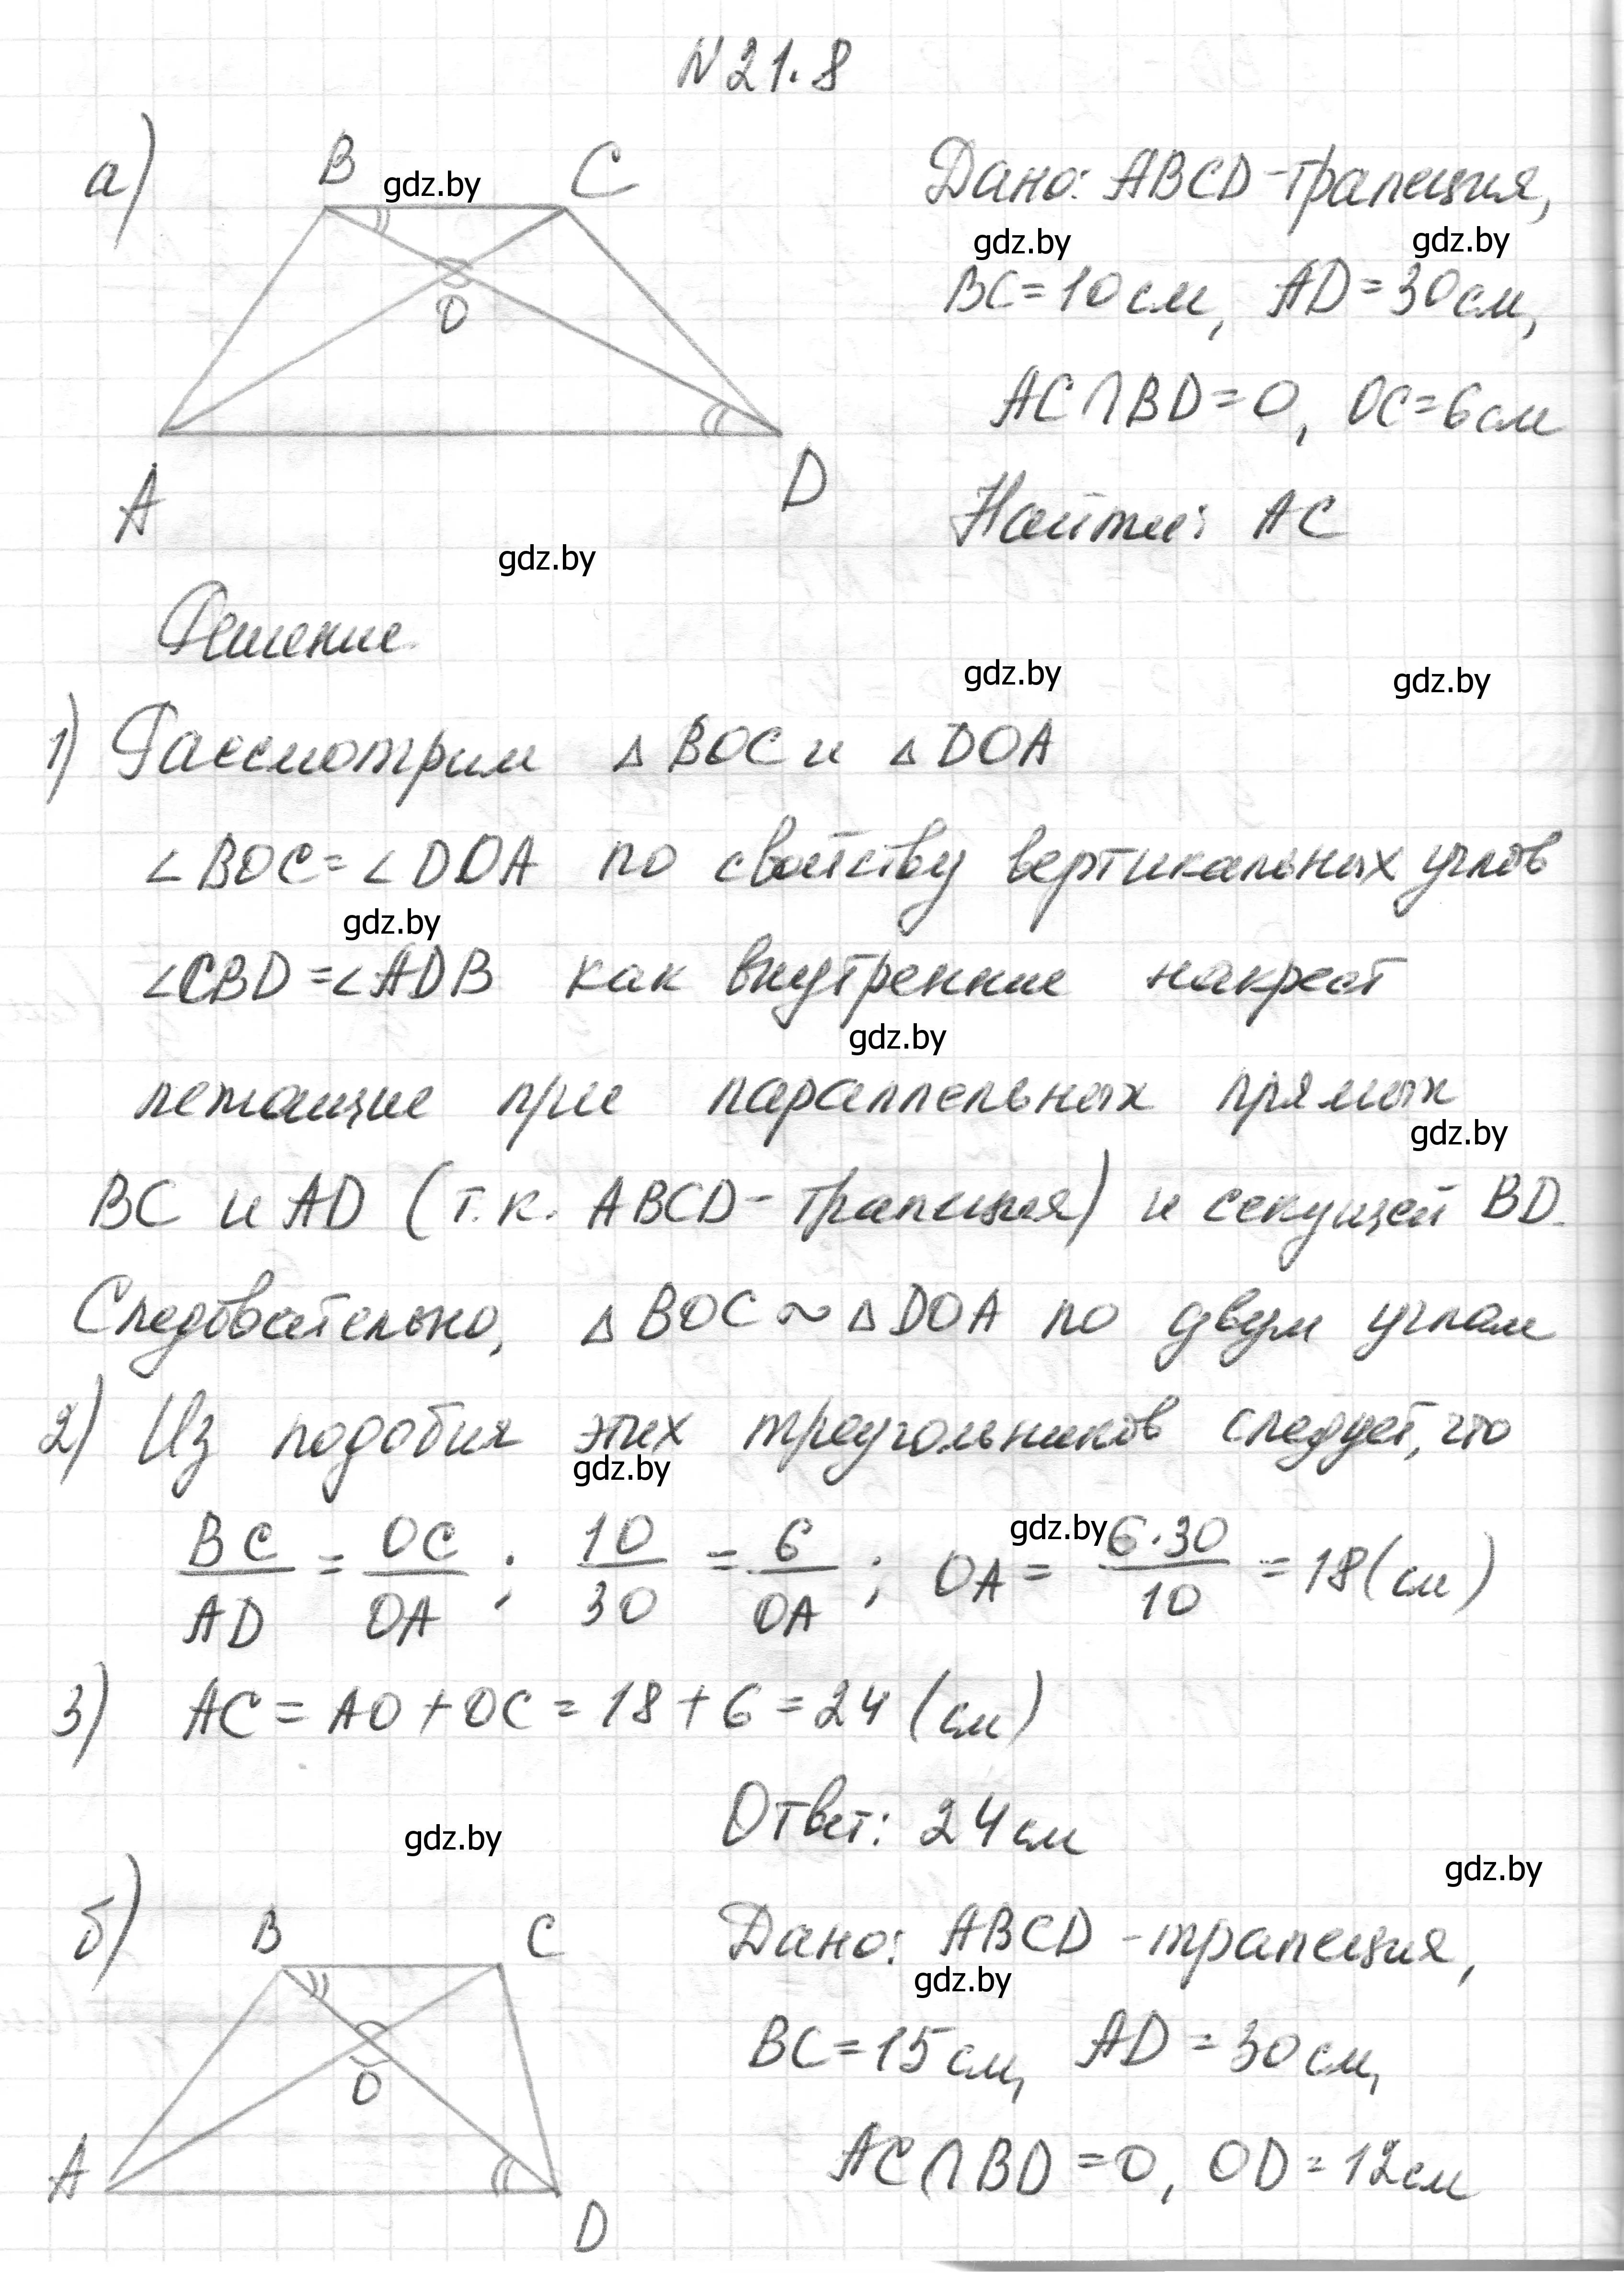 N 21.8
а) B C
O
A D
Дано: ABCD - трапеция,
BC = 10 см, AD = 30 см,
AC ∩ BD = O, OC = 6 см
Найти: AC
Решение
1) Рассмотрим △ BOC и △ DOA
∠ BOC = ∠ DOA по свойству вертикальных углов
∠CBD = ∠ADB как внутренние накрест
лежащие при параллельных прямых
BC и AD (т.к. ABCD - трапеция) и секущей BD.
Следовательно, △ BOC ~ △ DOA по двум углам
2) Из подобия этих треугольников следует, что
BC/AD = OC/OA ; 10/30 = 6/OA ; OA = 6·30/10 = 18 (см)
3) AC = AO + OC = 18 + 6 = 24 (см)
Ответ: 24 см
б) B C
O
A
D
Дано: ABCD - трапеция,
BC = 15 см, AD = 30 см,
AC ∩ BD = O, OD = 12 см
gdz.by
gdz.by
gdz.by
gdz.by
gdz.by
gdz.by
gdz.by
gdz.by
gdz.by
gdz.by
gdz.by
gdz.by
gdz.by
gdz.by